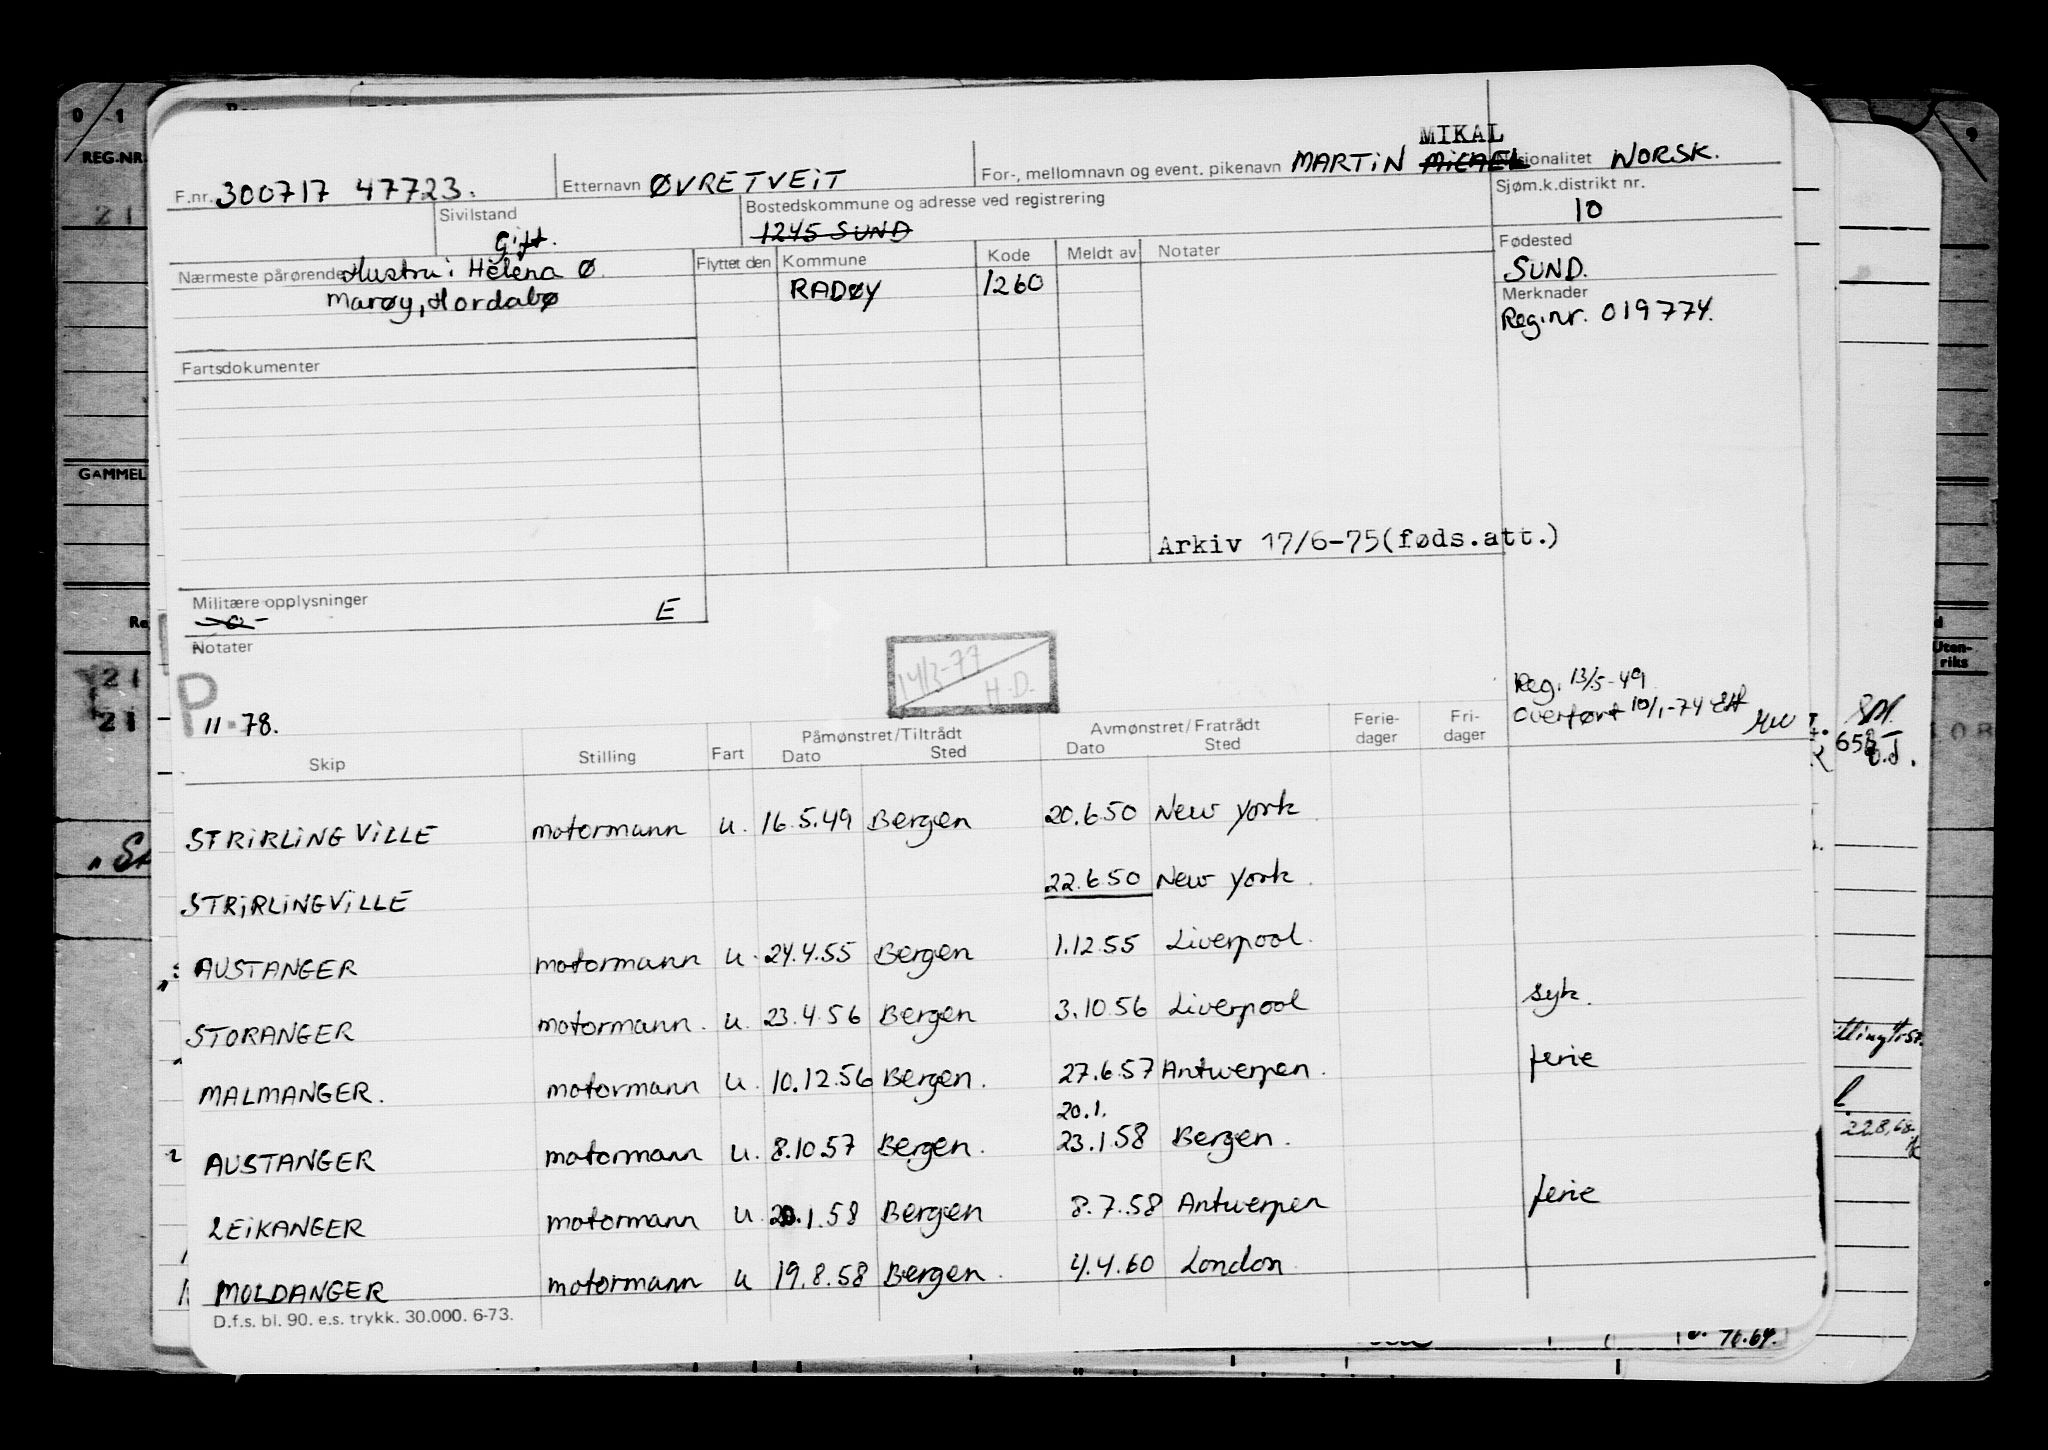 0/1
REG.NR.
21
GAMMEL
21
21
9
F.nr. 300717 47723.
Etternavn ØVRETVEIT
For-, mellomnavn og event. pikenavn MARTIN MICAEL
MIKAL
Nasjonalitet NORSK.
Sivilstand
Gift.
Bostedskommune og adresse ved registrering
1245 SUND
Sjøm.k.distrikt nr.
10
Nærmeste pårørende Hustru: Helena Ø.
Marøy, Hordabø
Flyttet den Kommune Kode Meldt av Notater
RADØY 1260
Fødested
SUND.
Merknader
Reg.nr. 019774.
Fartsdokumenter
Arkiv 17/6-75(føds.att.)
Militære opplysninger E
Notater
14/3-77
H.D.
P
11.78.
Reg. 13/5-49
Overført 10/1-74
Skip Stilling Fart Påmønstret/Tiltrådt Dato Sted Avmønstret/Fratrådt Dato Sted Ferie-dager Fri-dager
STRIRLING VILLE motormann u. 16.5.49 Bergen 20.6.50 New York
STRIRLINGVILLE 22.6.50 New York
AUSTANGER motormann u. 24.4.55 Bergen 1.12.55 Liverpool.
STORANGER motormann. u. 23.4.56 Bergen 3.10.56 Liverpool syk.
MALMANGER. motormann u. 10.12.56 Bergen. 27.6.57 Antwerpen. ferie
20.1.
AUSTANGER motormann u. 8.10.57 Bergen. 23.1.58 Bergen.
LEIKANGER motormann u. 20.1.58 Bergen 8.7.58 Antwerpen ferie
MOLDANGER motormann u 19.8.58 Bergen. 4.4.60 London
D.f.s. bl. 90. e.s. trykk. 30.000. 6-73.
Uten-
riks